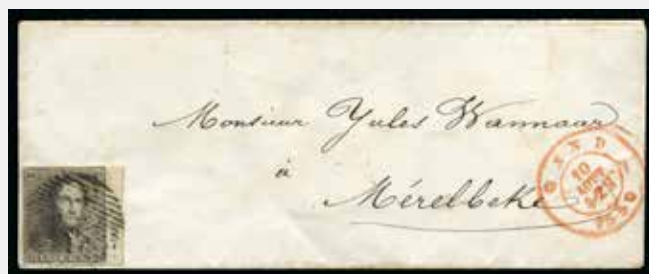 Monsieur Yules Wannaar
à
Mérelbeke
GAND
10
AOUT
1850